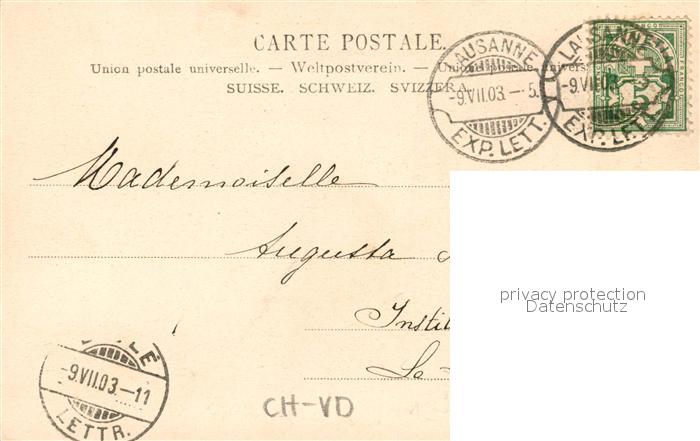 CARTE POSTALE.
Union postale universelle. — Weltpostverein. — Unione postale universale
SUISSE. SCHWEIZ. SVIZZERA.
LAUSANNE
-9.VII.03.—5.
EXP. LETT.
LAUSANNE
-9.VII.03
EXP. LETT.
FRANCO
Mademoiselle
Augusta
privacy protection
Datenschutz
Instit
La
LÉ
-9.VII.03.—11
LETTR.
CH-VD